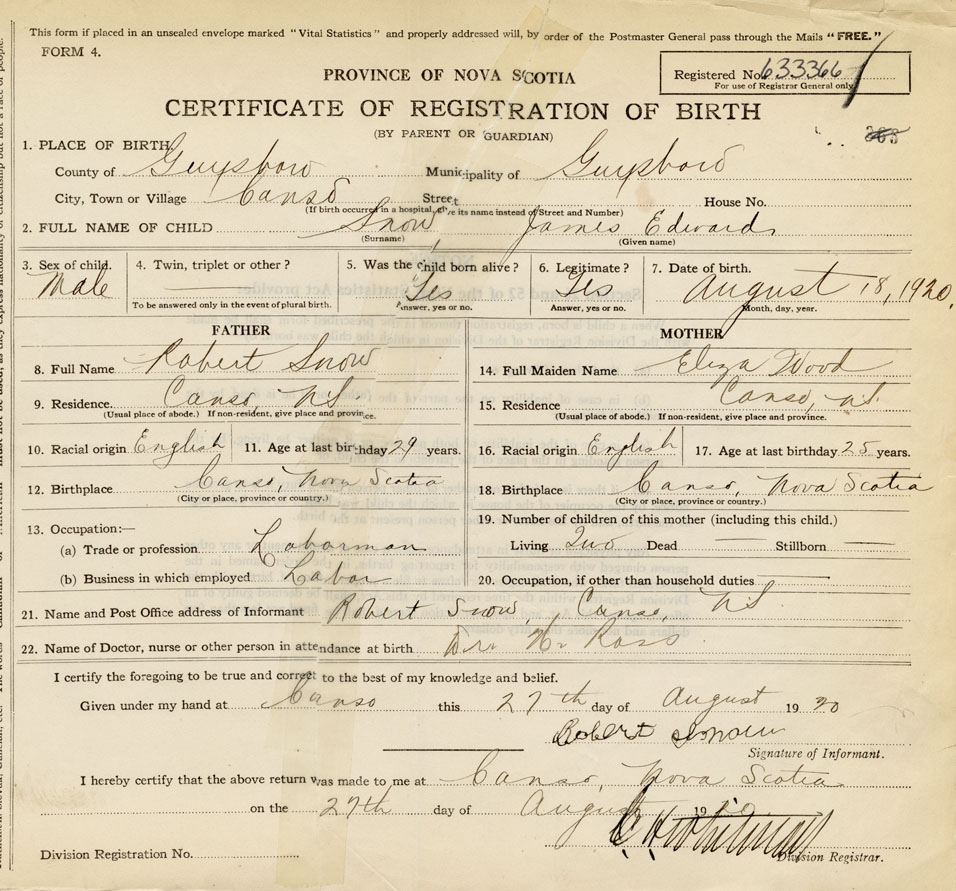 This form if placed in an unsealed envelope marked "Vital Statistics" and properly addressed will, by order of the Postmaster General pass through the Mails "FREE."
FORM 4.
Registered No. 633366
For use of Registrar General only
PROVINCE OF NOVA SCOTIA
CERTIFICATE OF REGISTRATION OF BIRTH
(BY PARENT OR GUARDIAN)
1. PLACE OF BIRTH
County of Guysboro Municipality of Guysboro
City, Town or Village Canso Street House No.
(If birth occurred in a hospital, give its name instead of Street and Number)
2. FULL NAME OF CHILD Snow, James Edward
(Surname) (Given name)
3. Sex of child. 4. Twin, triplet or other? 5. Was the child born alive? 6. Legitimate? 7. Date of birth.
Male Yes Yes August 18, 1920.
To be answered only in the event of plural birth. Answer, yes or no. Answer, yes or no. Month, day, year.
FATHER
8. Full Name Robert Snow
9. Residence. Canso, NS
(Usual place of abode.) If non-resident, give place and province.
10. Racial origin English 11. Age at last birthday 29 years.
12. Birthplace Canso, Nova Scotia
(City or place, province or country.)
13. Occupation:—
(a) Trade or profession Laborman
(b) Business in which employed Labor
MOTHER
14. Full Maiden Name Eliza Wood
15. Residence Canso, NS
(Usual place of abode.) If non-resident, give place and province.
16. Racial origin English 17. Age at last birthday 25 years.
18. Birthplace Canso, Nova Scotia
(City or place, province or country.)
19. Number of children of this mother (including this child.)
Living Two Dead — Stillborn —
20. Occupation, if other than household duties —
21. Name and Post Office address of Informant Robert Snow, Canso, NS
22. Name of Doctor, nurse or other person in attendance at birth Dr. H. Ross
I certify the foregoing to be true and correct to the best of my knowledge and belief.
Given under my hand at Canso this 27th day of August 1920
Robert Snow
Signature of Informant.
I hereby certify that the above return was made to me at Canso, Nova Scotia
on the 27th day of August 1920
Division Registration No. Division Registrar.